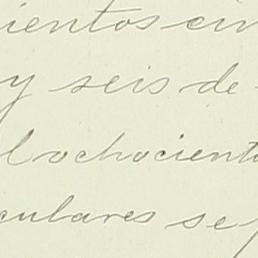 ientos cin
y seis de
l ochocient
culares se